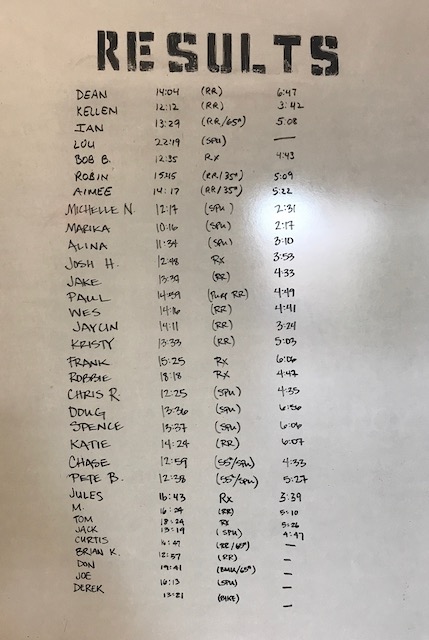 RESULTS
DEAN 14:04 (RR) 6:47
KELLEN 12:12 (RR) 3:42
IAN 13:29 (RR/65#) 5:08
LOU 22:19 (SPU) —
BOB B. 12:35 RX 4:43
ROBIN 15:45 (RR/35#) 5:09
AIMEE 14:17 (RR/35#) 5:22
MICHELLE N. 12:17 (SPU) 2:31
MARIKA 10:16 (SPU) 2:17
ALINA 11:34 (SPU) 3:10
JOSH H. 12:48 RX 3:53
JAKE 13:39 (RR) 4:33
PAUL 14:59 RR) 4:49
WES 14:16 (RR) 4:41
JAYLIN 14:11 (RR) 3:24
KRISTY 13:33 (RR) 5:03
FRANK 15:25 RX 6:06
ROBBIE 18:18 RX 4:47
CHRIS R. 12:25 (SPU) 4:35
DOUG 13:36 (SPU) 6:56
SPENCE 13:37 (SPU) 6:06
KATIE 14:24 (RR) 6:07
CHASE 12:59 (55#/SPU) 4:33
PETE B. 12:38 (55#/SPU) 5:27
JULES 16:43 RX 3:39
M. 16:29 (RR) 5:10
TOM 18:24 RX 5:26
JACK 13:19 (SPU) 4:47
CURTIS (RR/65#) —
BRIAN K. 12:57 (RR) —
DON 19:41 —
JOE 16:13 (SPU) —
DEREK 13:21 (BIKE) —